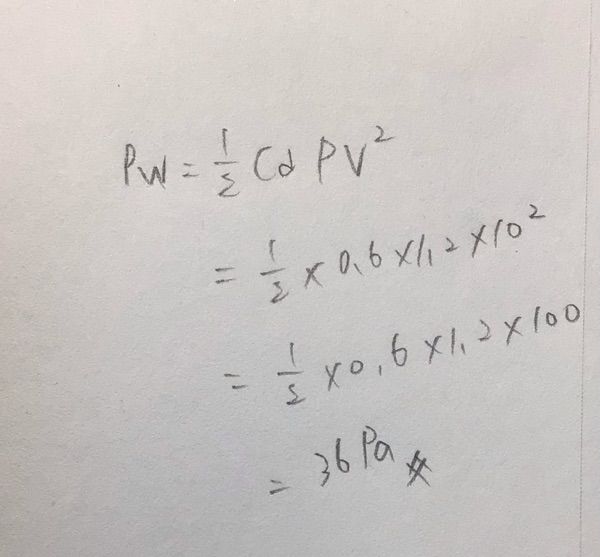 Pw = 1/2 Cd PV²
= 1/2 × 0.6 × 1.2 × 10²
= 1/2 × 0.6 × 1.2 × 100
= 36 Pa #